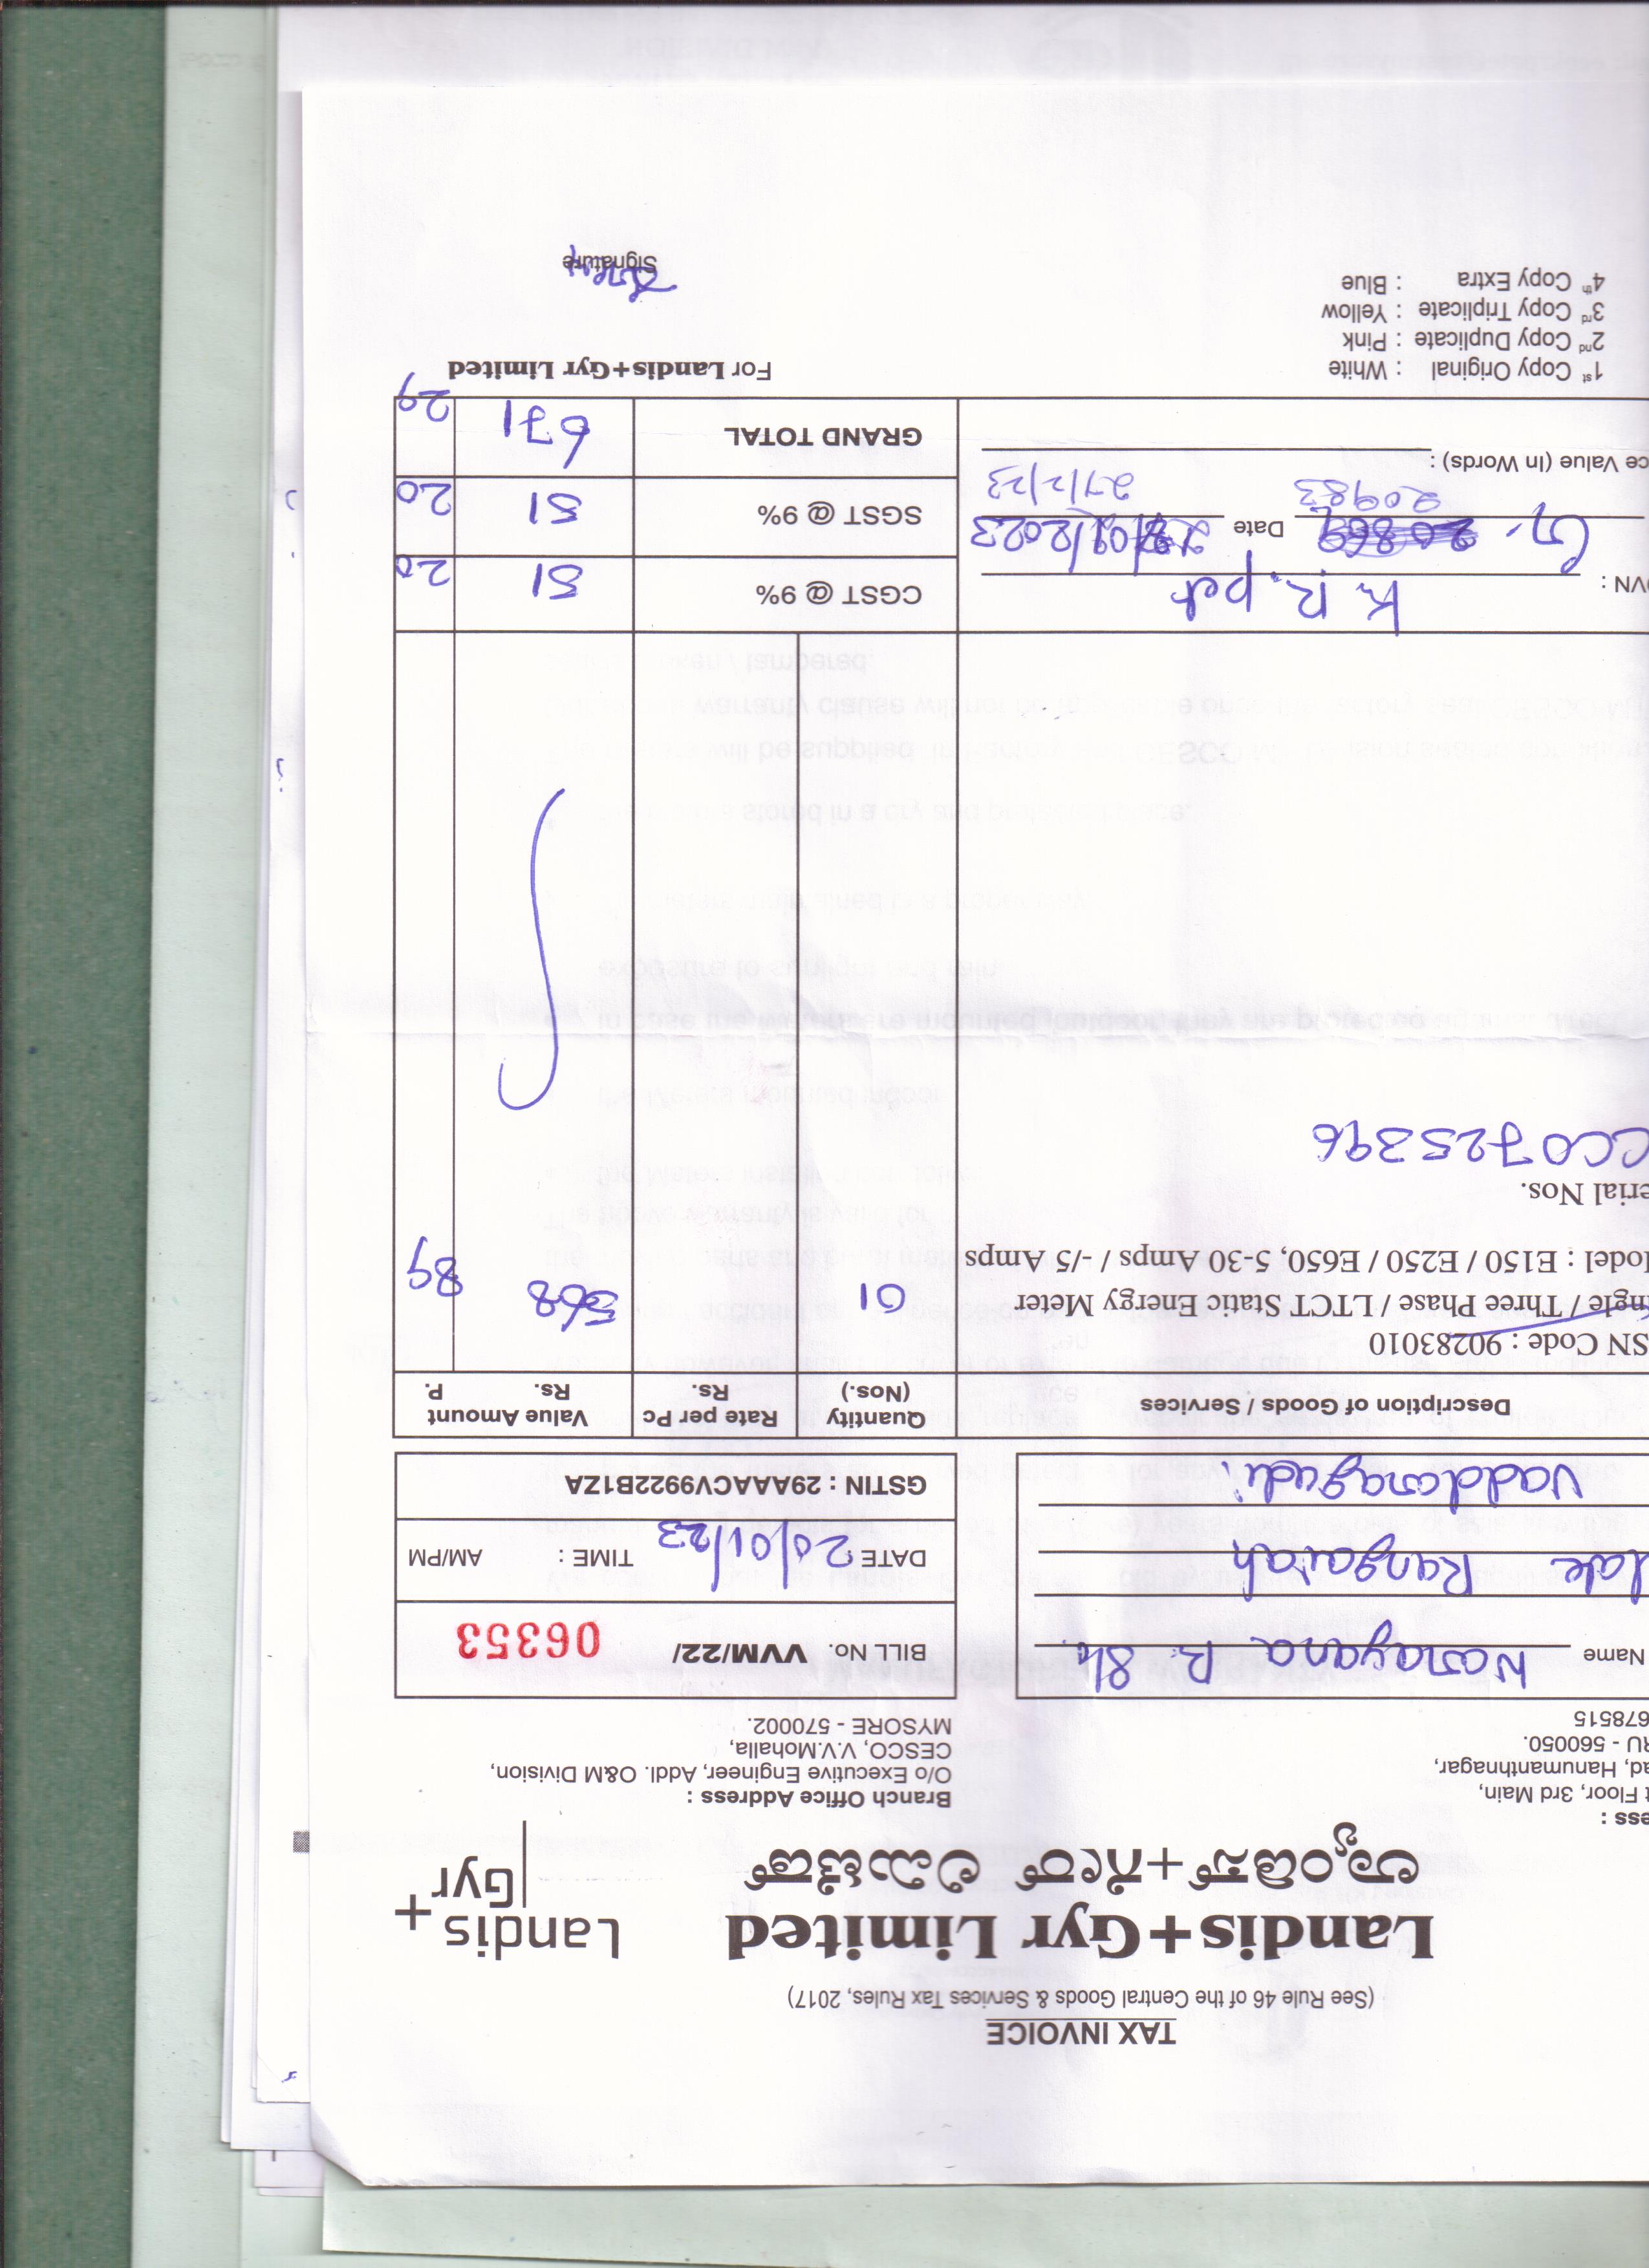 TAX INVOICE
(See Rule 46 of the Central Goods & Services Tax Rules, 2017)
Landis+Gyr Limited
ಲ್ಯಾಂಡಿಸ್+ಗೇರ್ ಲಿಮಿಟೆಡ್
Landis
Gyr+
ess :
t Floor, 3rd Main,
ad, Hanumanthnagar,
RU - 560050.
678515
Branch Office Address :
O/o Executive Engineer, Addl. O&M Division,
CESCO, V.V.Mohalla,
MYSORE - 570002.
Name Narayana R. Sh.
late Rangaiah
Vaddaragudi.
BILL NO. VVM/22/ 06353
DATE : 20/01/23 TIME : AM/PM
GSTIN : 29AAACV9922B1ZA
Description of Goods / Services Quantity (Nos.) Rate per Pc Rs. Value Amount Rs. P.
SN Code : 90283010
ngle / Three Phase / LTCT Static Energy Meter 01 568 89
Model : E150 / E250 / E650, 5-30 Amps / -/5 Amps
erial Nos.
CC0725396
VN : K. R. pet
CGST @ 9% 51 20
20869 Date 2023
20983 27/2/23
SGST @ 9% 51 20
ce Value (In Words) :
GRAND TOTAL 671 29
For Landis+Gyr Limited
1st Copy Original : White
2nd Copy Duplicate : Pink
3rd Copy Triplicate : Yellow
4th Copy Extra : Blue
Signature